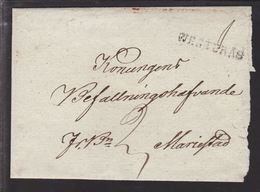 WESTERÅS
Konungens
Befallningshafvande
Mariestad